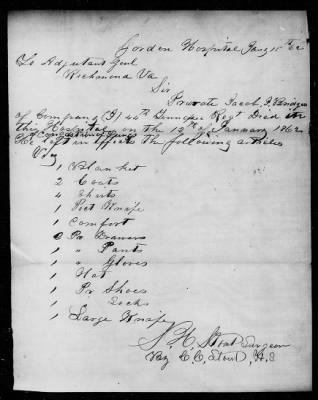 Gordon Hospital Jany 15th 62
To Adjutant Genl
Richmond Va
Sir
Private Jacob F. Bridges
of Company (F) 44th Tennessee Regt Died in
this Hospital on the 12th of January 1862
He left in effects the following articles
Viz
1 Blanket
2 Coats
4 Shirts
1 Pct Knife
1 Comfort
2 Pr Drawers
1 " Pants
1 " Gloves
1 Hat
1 Pr Shoes
1 Socks
1 Large Knife
S. H. Stout Surgeon
By C. C. Stout, H. S